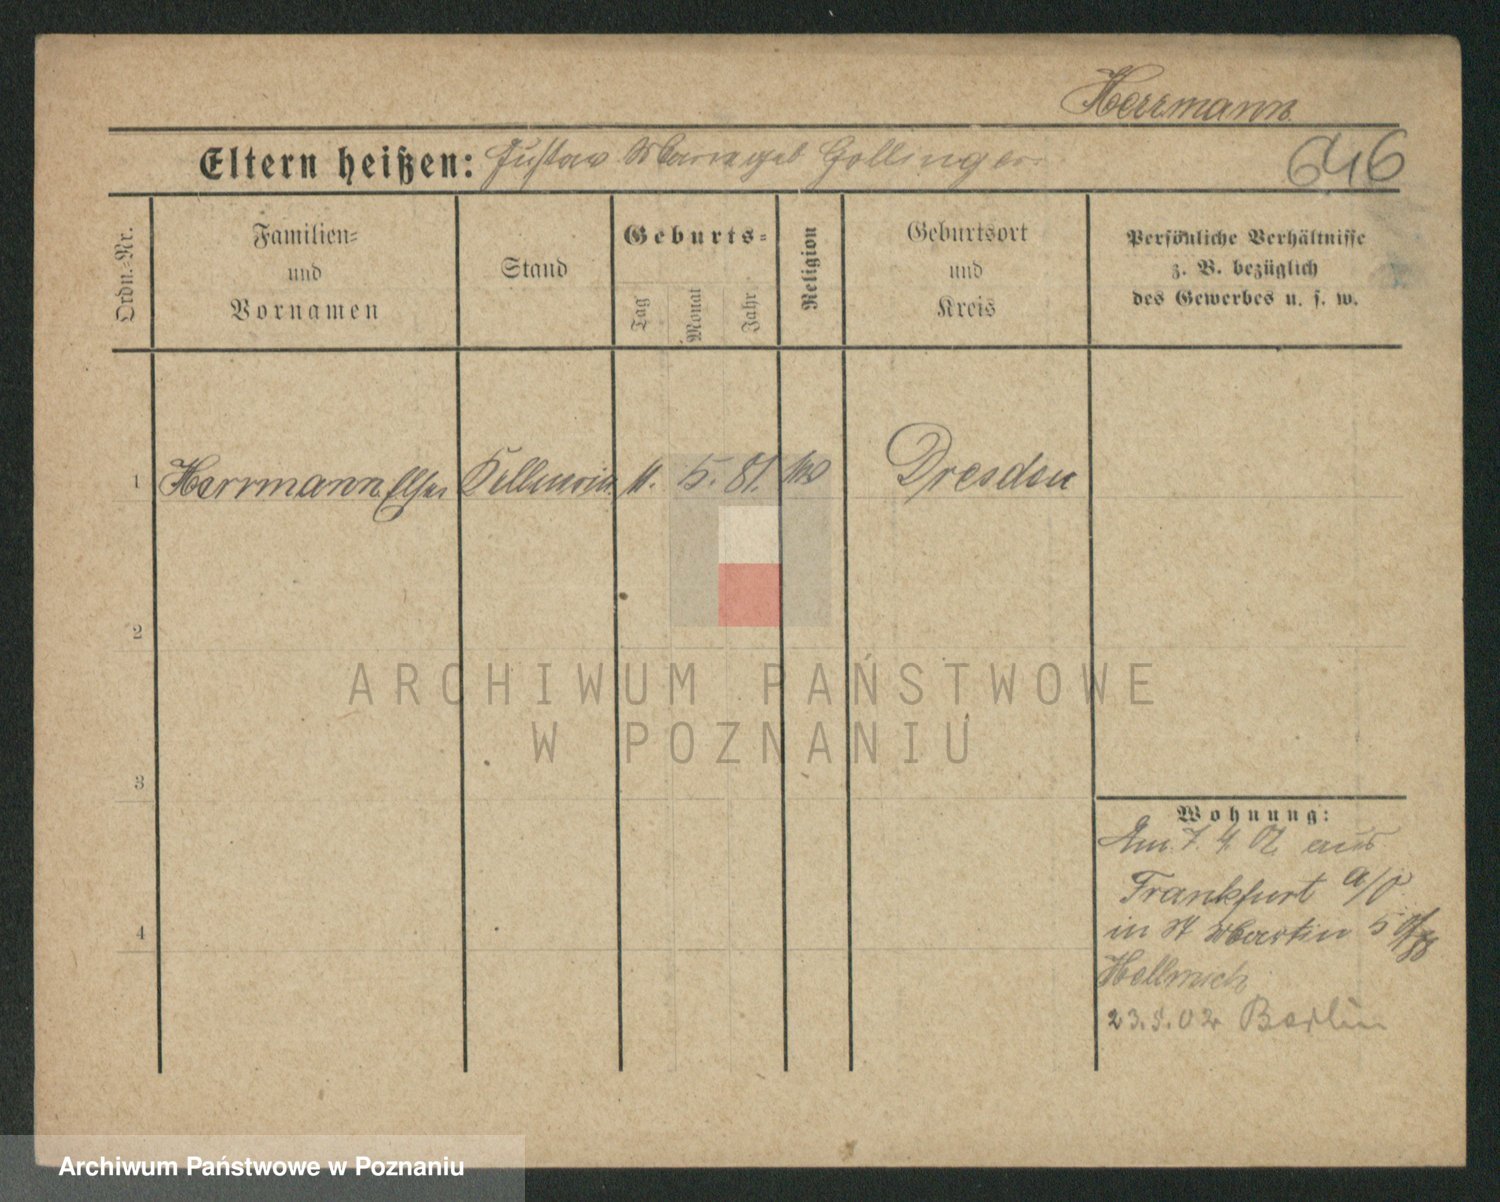 Herrmann
Eltern heißen: Gustav Gollinger
646
Ordn.-Nr.
Familien=
und
Vornamen
Stand
Geburts=
Tag
Monat
Jahr
Religion
Geburtsort
und
Kreis
Persönliche Verhältnisse
z. B. bezüglich
des Gewerbes u. s. w.
1 Herrmann Elsa Kellnerin 11. 5. 81. Dresden
2
3
4
ARCHIWUM PAŃSTWOWE
W POZNANIU
Wohnung:
Am 7. 4. 02 aus
Frankfurt a/O.
in St Martin 5
Hellmich
23.5.02 Berlin
Archiwum Państwowe w Poznaniu